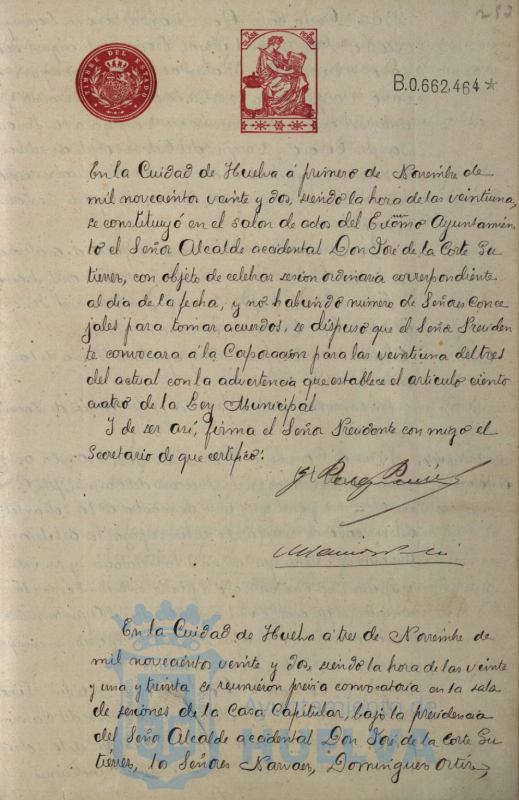 282
TIMBRE DEL ESTADO
B.0.662,464*
En la Cuidad de Huelva á primero de Noviembre de
mil novecientos veinte y dos, siendo la hora de las veintiuna,
se constituyó en el salon de actos del Exmo Ayuntamien
to el Señor Alcalde accidental Don José de la Corte Gu
tierrez, con objeto de celebrar sesion ordinaria correspondiente
al dia de la fecha, y no habiendo número de Señores Conce
jales para tomar acuerdos, se dispuso que el Señor Presiden
te convocara á la Corporación para las veintiuna del tres
del actual con la advertencia que establece el articulo ciento
cuatro de la Ley Municipal
Y de ser asi, firma el Señor Presidente con migo el
Secretario de que certifico:
En la Cuidad de Huelva a tres de Noviembre de
mil novecientos veinte y dos, siendo la hora de las veinte
y una y treinta se reunieron previa convocatoria en la sala
de sesiones de la Casa Capitular, bajo la presidencia
del Señor Alcalde accidental Don José de la Corte Gu
tierrez, los Señores Narvaez, Dominguez Ortiz,
Ayuntamiento de
HUELVA